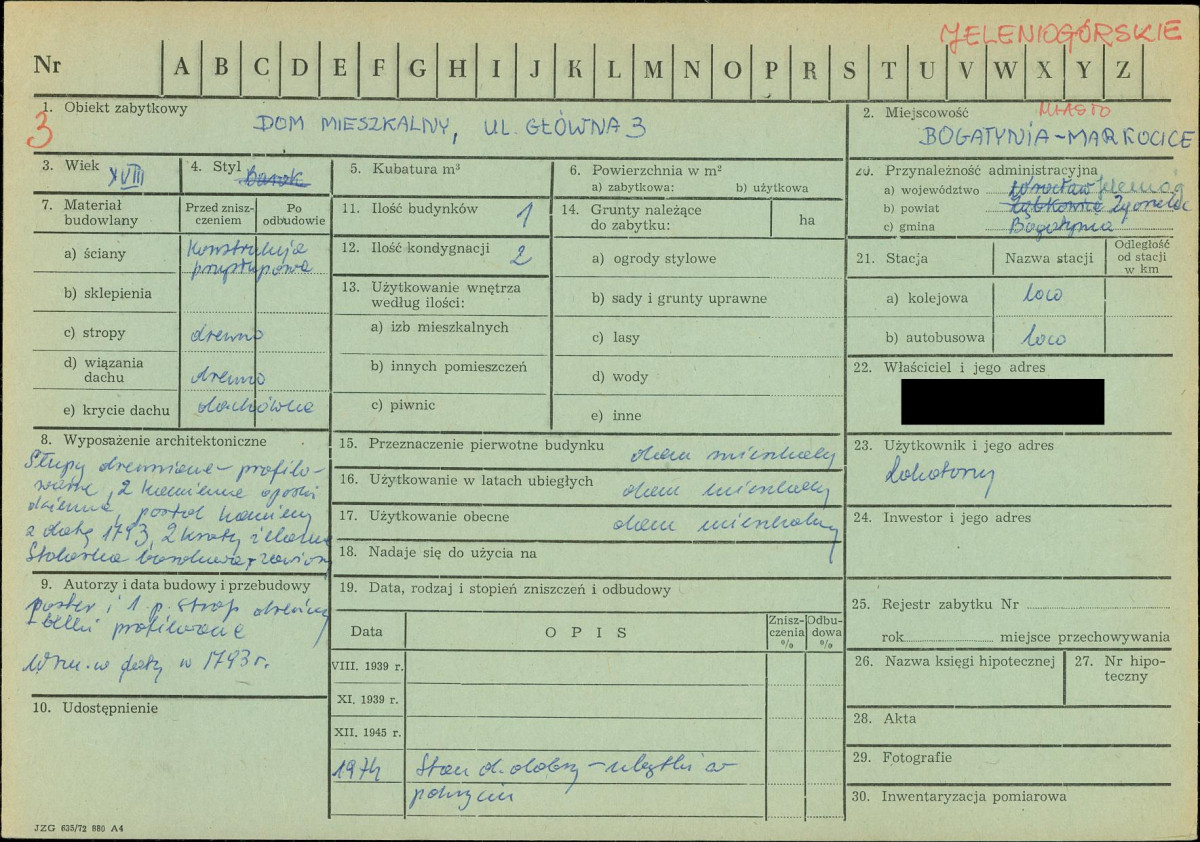 JELENIOGÓRSKIE
Nr A B C D E F G H I J K L M N O P R S T U V W X Y Z
1. Obiekt zabytkowy
3
DOM MIESZKALNY, UL. GŁÓWNA 3
2. Miejscowość
MIASTO
BOGATYNIA-MARKOCICE
3. Wiek XVIII
4. Styl Barok
5. Kubatura m³
6. Powierzchnia w m²
a) zabytkowa: b) użytkowa
20. Przynależność administracyjna
a) województwo Wrocław
b) powiat
c) gmina Bogatynia
7. Materiał
budowlany
Przed znisz-
czeniem
Po
odbudowie
a) ściany konstrukcja
przysłupowa
b) sklepienia
c) stropy drewno
d) wiązania
dachu drewno
e) krycie dachu dachówka
11. Ilość budynków 1
12. Ilość kondygnacji 2
13. Użytkowanie wnętrza
według ilości:
a) izb mieszkalnych
b) innych pomieszczeń
c) piwnic
14. Grunty należące
do zabytku:
ha
a) ogrody stylowe
b) sady i grunty uprawne
c) lasy
d) wody
e) inne
21. Stacja
Nazwa stacji
Odległość
od stacji
w km
a) kolejowa loco
b) autobusowa loco
22. Właściciel i jego adres
8. Wyposażenie architektoniczne
Słupy drewniane – profilo-
wane, 2 kamienne
portal kamienny
z datą 1793, 2 kraty żelazne
Stolarka barokowa,
9. Autorzy i data budowy i przebudowy
parter i 1 p. strop drewniany
– belki profilowane
w 1793 r.
10. Udostępnienie
15. Przeznaczenie pierwotne budynku dom mieszkalny
16. Użytkowanie w latach ubiegłych dom mieszkalny
17. Użytkowanie obecne dom mieszkalny
18. Nadaje się do użycia na
19. Data, rodzaj i stopień zniszczeń i odbudowy
Data
OPIS
Znisz-
czenia
%
Odbu-
dowa
%
VIII. 1939 r.
XI. 1939 r.
XII. 1945 r.
1974 Stan d. dobry – ubytki w
pokryciu
23. Użytkownik i jego adres
Lokatorzy
24. Inwestor i jego adres
25. Rejestr zabytku Nr
rok miejsce przechowywania
26. Nazwa księgi hipotecznej
27. Nr hipo-
teczny
28. Akta
29. Fotografie
30. Inwentaryzacja pomiarowa
JZG 635/72 880 A4